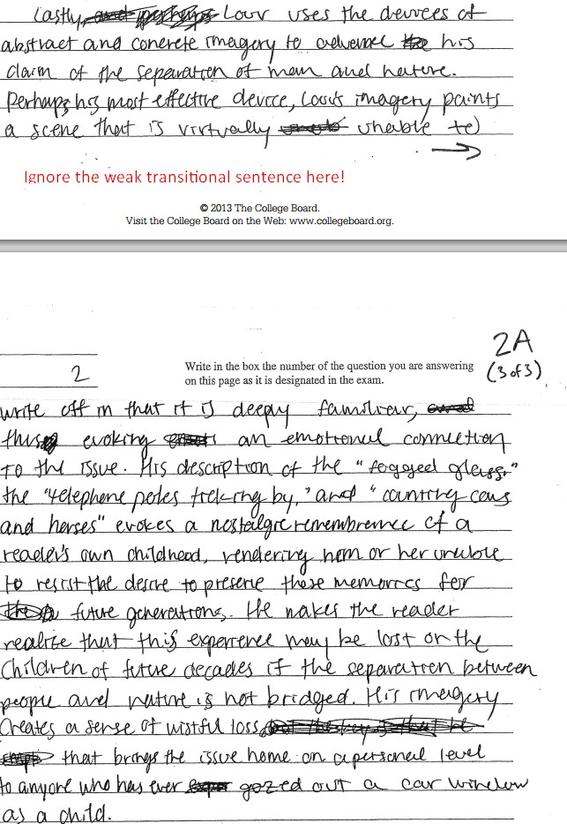 Lastly, Louv uses the devices of
abstract and concrete imagery to advance his
claim of the separation of man and nature.
Perhaps his most effective device, Louv's imagery paints
a scene that is virtually unable to
Ignore the weak transitional sentence here!
© 2013 The College Board.
Visit the College Board on the Web: www.collegeboard.org.
2A
Write in the box the number of the question you are answering
2
(3 of 3)
on this page as it is designated in the exam.
write off in that it is deeply familiar,
thus evoking an emotional connection
to the issue. His description of the "fogged glass,"
the "telephone poles ticking by," and "counting cows
and horses" evokes a nostalgic remembrance of a
reader's own childhood, rendering him or her unable
to resist the desire to preserve these memories for
future generations. He makes the reader
realize that this experience may be lost on the
children of future decades if the separation between
people and nature is not bridged. His imagery
creates a sense of wistful loss
that brings the issue home on a personal level
to anyone who has ever gazed out a car window
as a child.